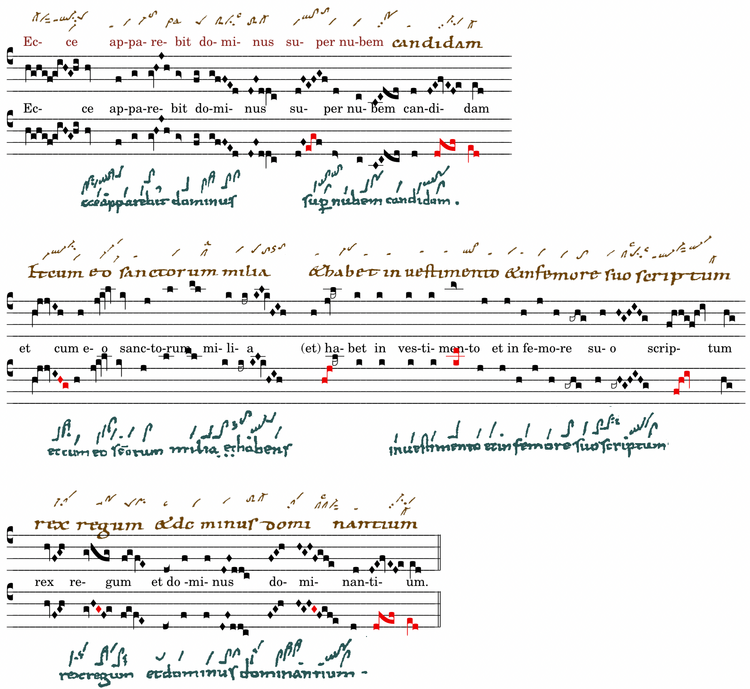 Ec- ce ap-pa- re- bit do- mi- nus su- per nu-bem candidam
Ec- ce ap-pa-re- bit do-mi- nus su- per nu- bem can-di- dam
ecce apparebit dominus sup̱ nubem candidam .
Et cum eo sanctorum milia & habet in uestimento & in femore suo scriptum
et cum e- o sanc-to-rum mi- li- a (et) ha- bet in ves-ti- men-to et in fe-mo-re su- o scrip- tum
et cum eo scōrum milia et habens in uestimento et in femore suo scriptum
rex regum & do minus domi nantium
rex re- gum et do -mi- nus do- mi- nan-ti- um.
rex regum et dominus dominantium